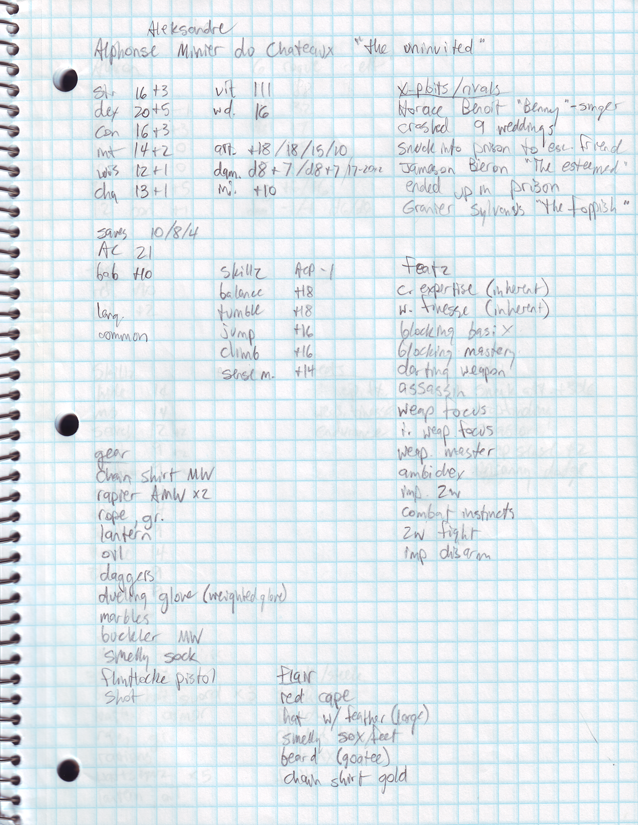 Aleksandre
Alphonse Minier do Chateaux "the uninvited"
str 16 +3
dex 20 +5
con 16 +3
int 14 +2
wis 12 +1
cha 13 +1
saves 10/8/4
AC 21
bab +10
lang.
common
vit 111
wd. 16
att. +18/18/15/10
dam. d8+7/d8+7/17-20x2
mi. +10
x-ploits/rivals
Horace Benoit "Benny" - singer
crashed 9 weddings
snuck into prison to esc. friend
Jameson Bieron "The esteemed"
ended up in prison
Granier Sylvonis "the foppish"
skillz ACP -1
balance +18
tumble +18
jump +16
climb +16
sense m. +14
Featz
c. expertise (inherent)
w. finesse (inherent)
blocking basix
blocking mastery
darting weapon
assassin
weap focus
i. weap focus
weap. master
ambidex
imp. 2w
combat instincts
2w fight
imp disarm
gear
chain shirt MW
rapier AMW x2
rope, gr.
lantern
oil
daggers
dueling glove (weighted glove)
marbles
buckler MW
smelly sock
flintlocke pistol
shot
flair
red cape
hat w/ feather (large)
smelly sox/feet
beard (gootee)
chain shirt gold